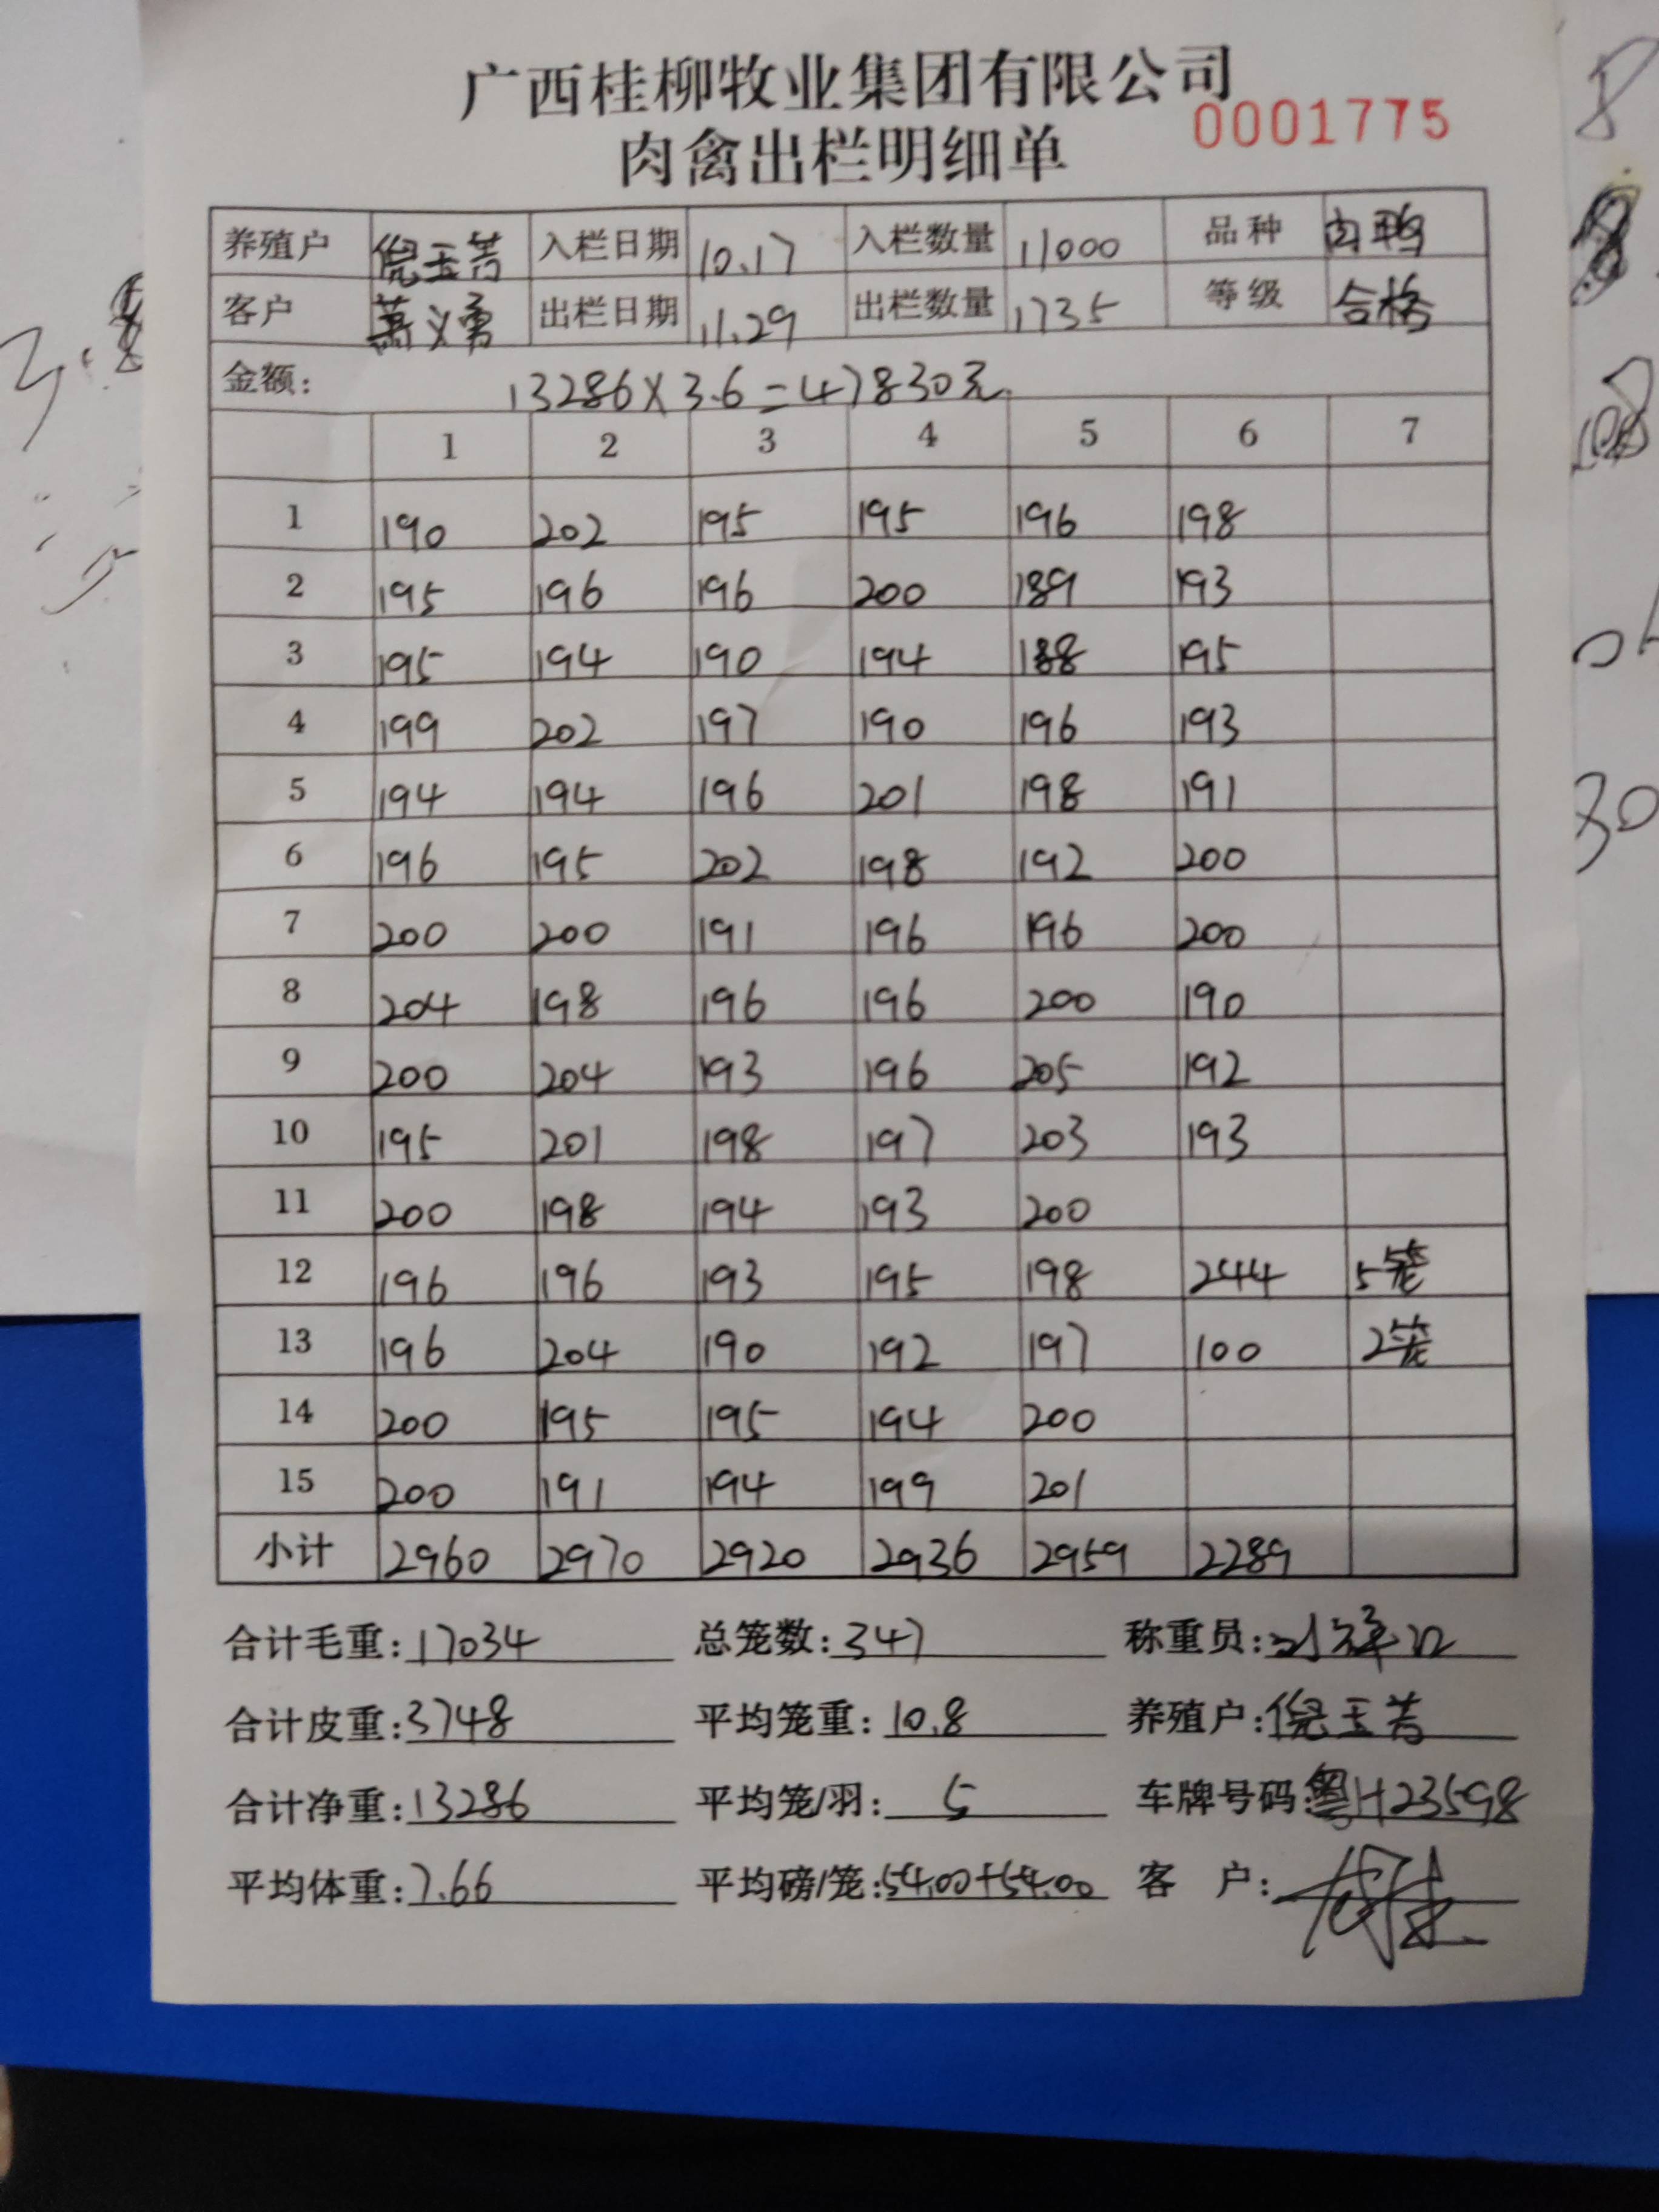 广西桂柳牧业集团有限公司
肉禽出栏明细单 0001775
养殖户 倪玉芳 入栏日期 10.17 入栏数量 11000 品种 肉鸭
客户 萧义勇 出栏日期 11.29 出栏数量 1735 等级 合格
金额: 13286×3.6=47830元
1 2 3 4 5 6 7
1 190 202 195 195 196 198
2 195 196 196 200 189 193
3 195 194 190 194 188 195
4 199 202 197 190 196 193
5 194 194 196 201 198 191
6 196 195 202 198 192 200
7 200 200 191 196 196 200
8 204 198 196 196 200 190
9 200 204 193 196 205 192
10 195 201 198 197 203 193
11 200 198 194 193 200
12 196 196 193 195 198 244 5笼
13 196 204 190 192 197 100 2笼
14 200 195 195 194 200
15 200 191 194 199 201
小计 2960 2970 2920 2936 2959 2289
合计毛重:17034 总笼数:347 称重员:
合计皮重:3748 平均笼重:10.8 养殖户:倪玉芳
合计净重:13286 平均笼/羽:5 车牌号码:粤H23598
平均体重:7.66 平均磅/笼:54.00+54.00 客 户: